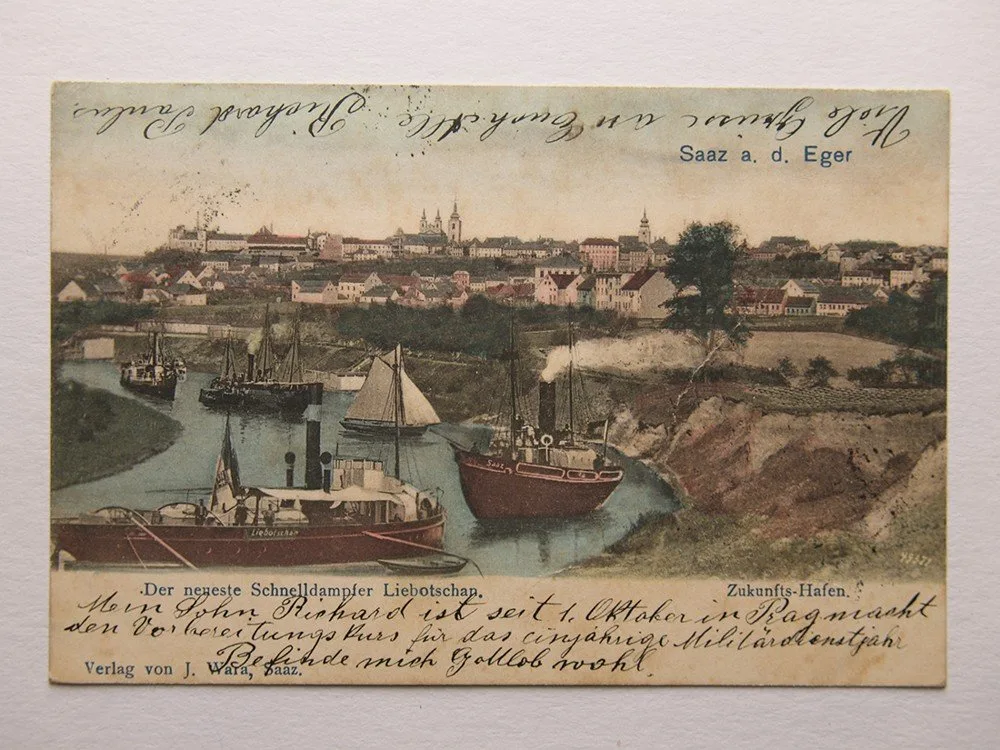 Viele Grüsse an Euch Alle Richard Paulus.
Saaz a. d. Eger
Saaz
Liebotschan
Der neueste Schnelldampfer Liebotschan.
Zukunfts-Hafen.
Mein Sohn Richard ist seit 1. Oktober in Prag macht
den Vorbereitungskurs für das einjährige Militärdienstjahr
Befinde mich Gottlob wohl.
Verlag von J. Wara, Saaz.